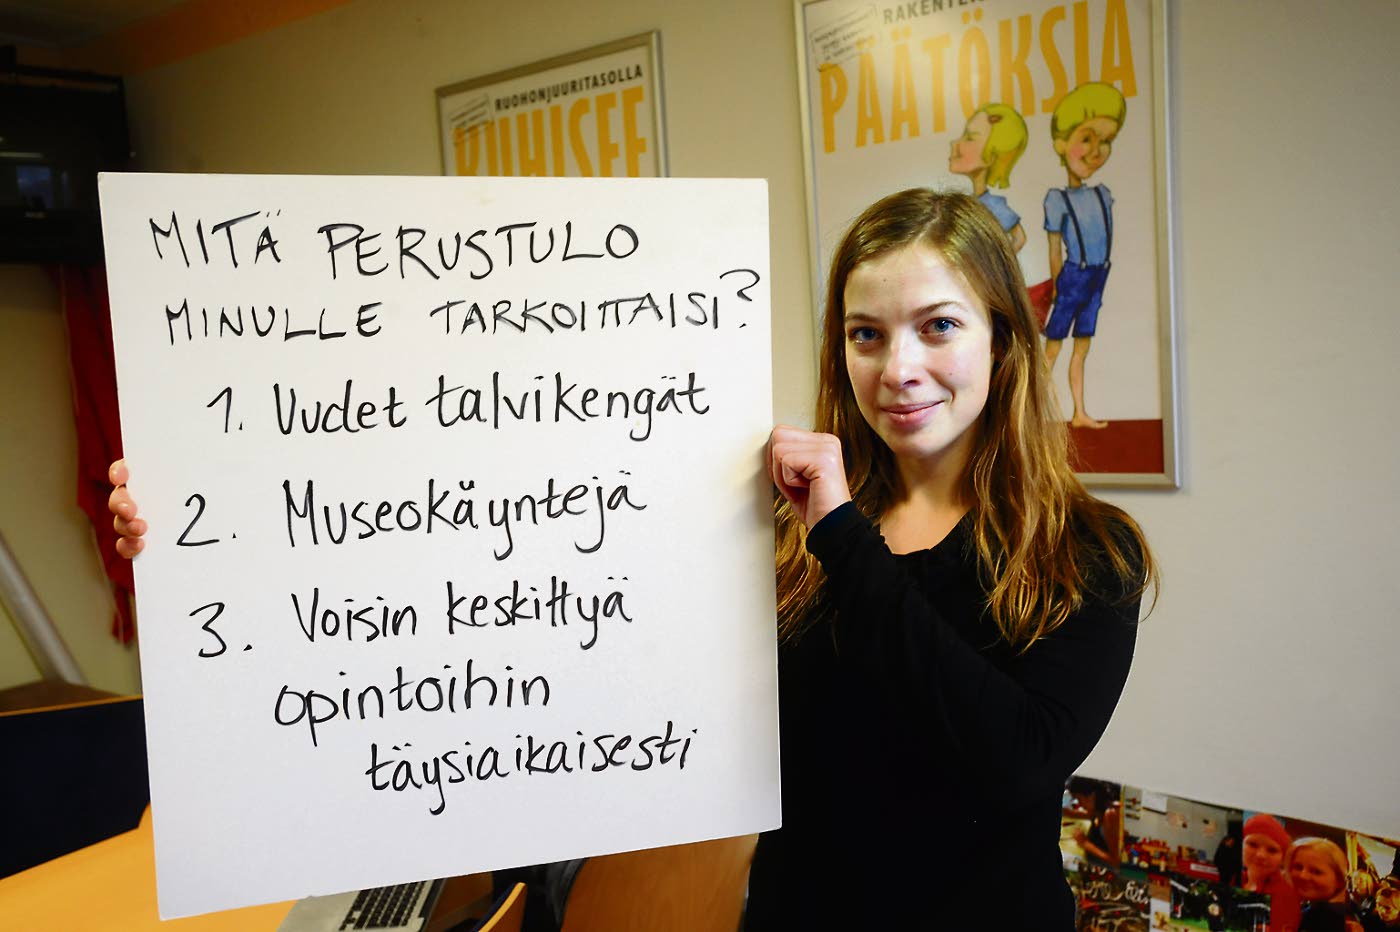 RUOHONJUURITASOLLA
KUHISEE
PÄÄTÖKSIA
MITÄ PERUSTULO
MINULLE TARKOITTAISI?
1. Uudet talvikengät
2. Museokäyntejä
3. Voisin keskittyä
opintoihin
täysiaikaisesti